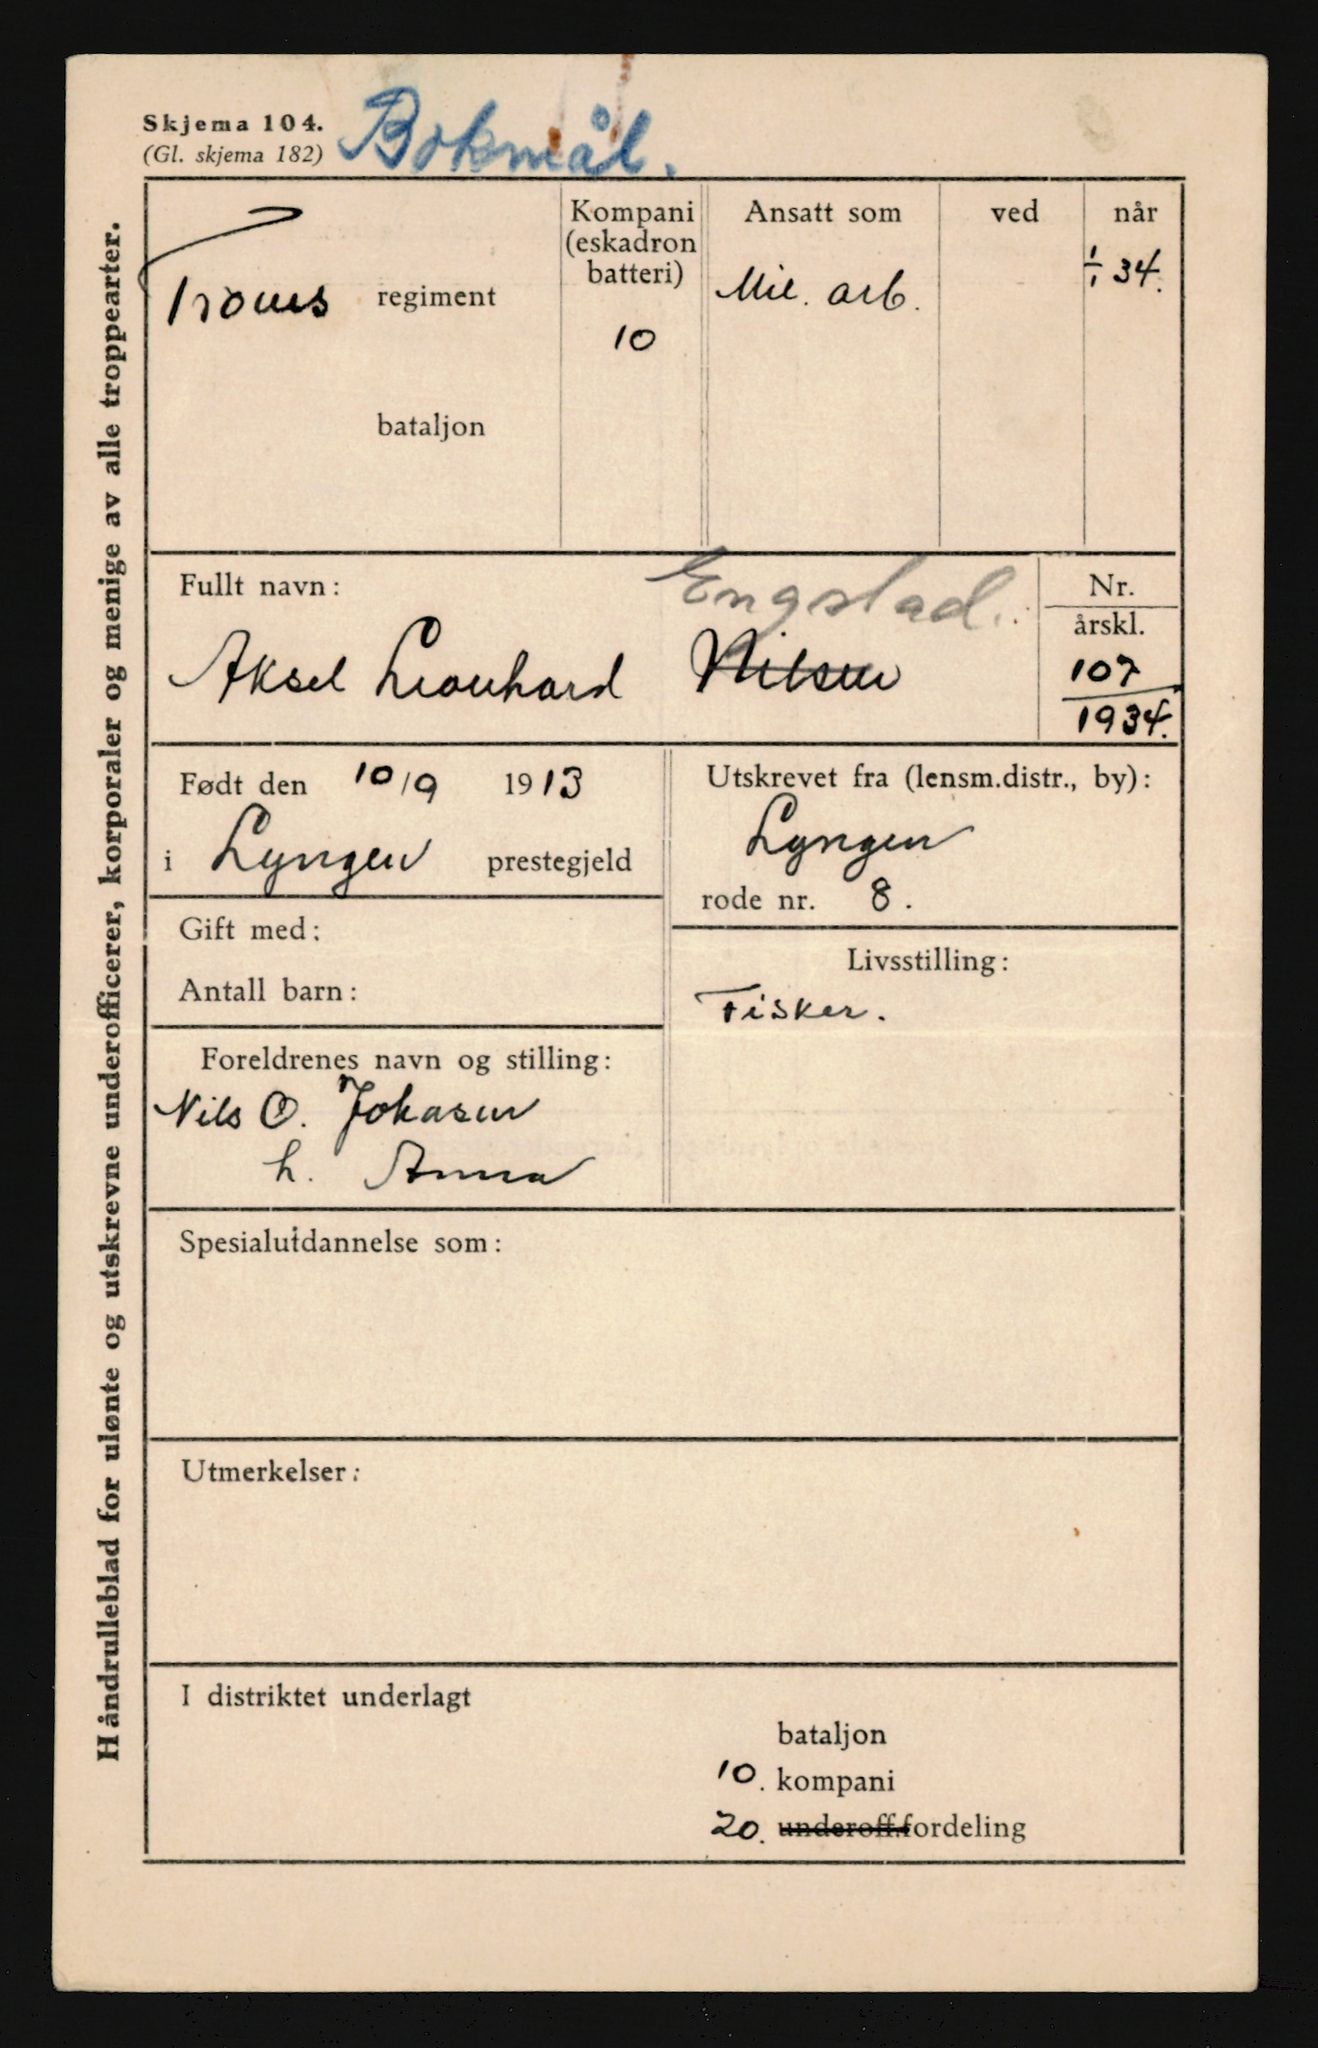 Skjema 104.
(Gl. skjema 182)
Bokmål.
Håndrulleblad for ulønte og utskrevne underofficerer, korporaler og menige av alle troppearter.
Troms regiment
bataljon
Kompani
(eskadron
batteri)
10
Ansatt som
Mil. arb.
ved
når
1/1 34.
Fullt navn:
Engstad.
Aksel Leonhard Nilsen
Nr.
årskl.
107
1934.
Født den 10/9 1913
i Lyngen prestegjeld
Utskrevet fra (lensm.distr., by):
Lyngen
rode nr. 8.
Gift med:
Antall barn:
Livsstilling:
Fisker.
Foreldrenes navn og stilling:
Nils O. Johasen
h. Anna
Spesialutdannelse som:
Utmerkelser:
I distriktet underlagt
bataljon
10. kompani
20. underoff.fordeling